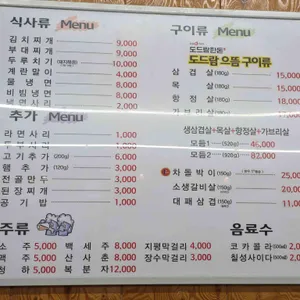 식사류 Menu
김치찌개 9,000
부대찌개 9,000
두루치기
계란말이
물냉면 8,000
비빔냉면 8,000
냉면사리
추가 Menu
라면사리 1,000
두부사리
고기추가 (200g) 3,000
햄추가 (150g) 3,000
전골만두 3,000
된장찌개 3,000
공기밥 1,000
구이류 Menu
도드람한돈
도드람 으뜸 구이류
삼겹살 (180g) 15,000
목살 (180g)
항정살 (180g)
가브리살
생삼겹살+목살+항정살+가브리살
모듬1 (520g) 46,000
모듬2 (920g) 82,000
차돌박이 (150g) 25,000
소생갈비살
대패삼겹
주류
소주 5,000 백세주 8,000 지평막걸리 4,000
맥주 5,000 산사춘 8,000 장수막걸리 3,000
청하 5,000 복분자 12,000
음료수
코카콜라
칠성사이다